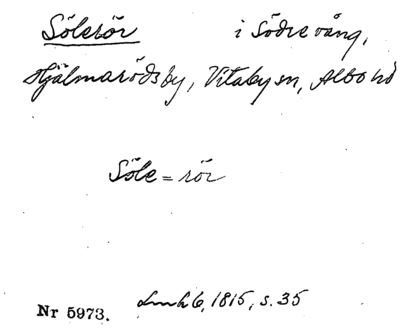 Sölerör i Södre vång,
Hjälmarödsby, Vitaby sn, Albo hd
Söle=rör
Nr 5973. Lmh 6, 1815, s. 35